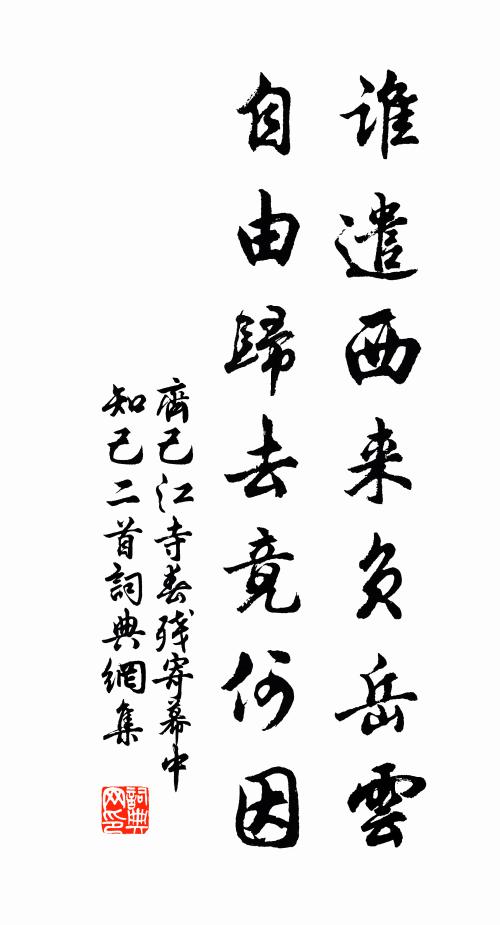 谁遣西来负岳雲
自由歸去竟何因
齊己江寺春残寄幕中
知己二首詞典網集
詞典
网印